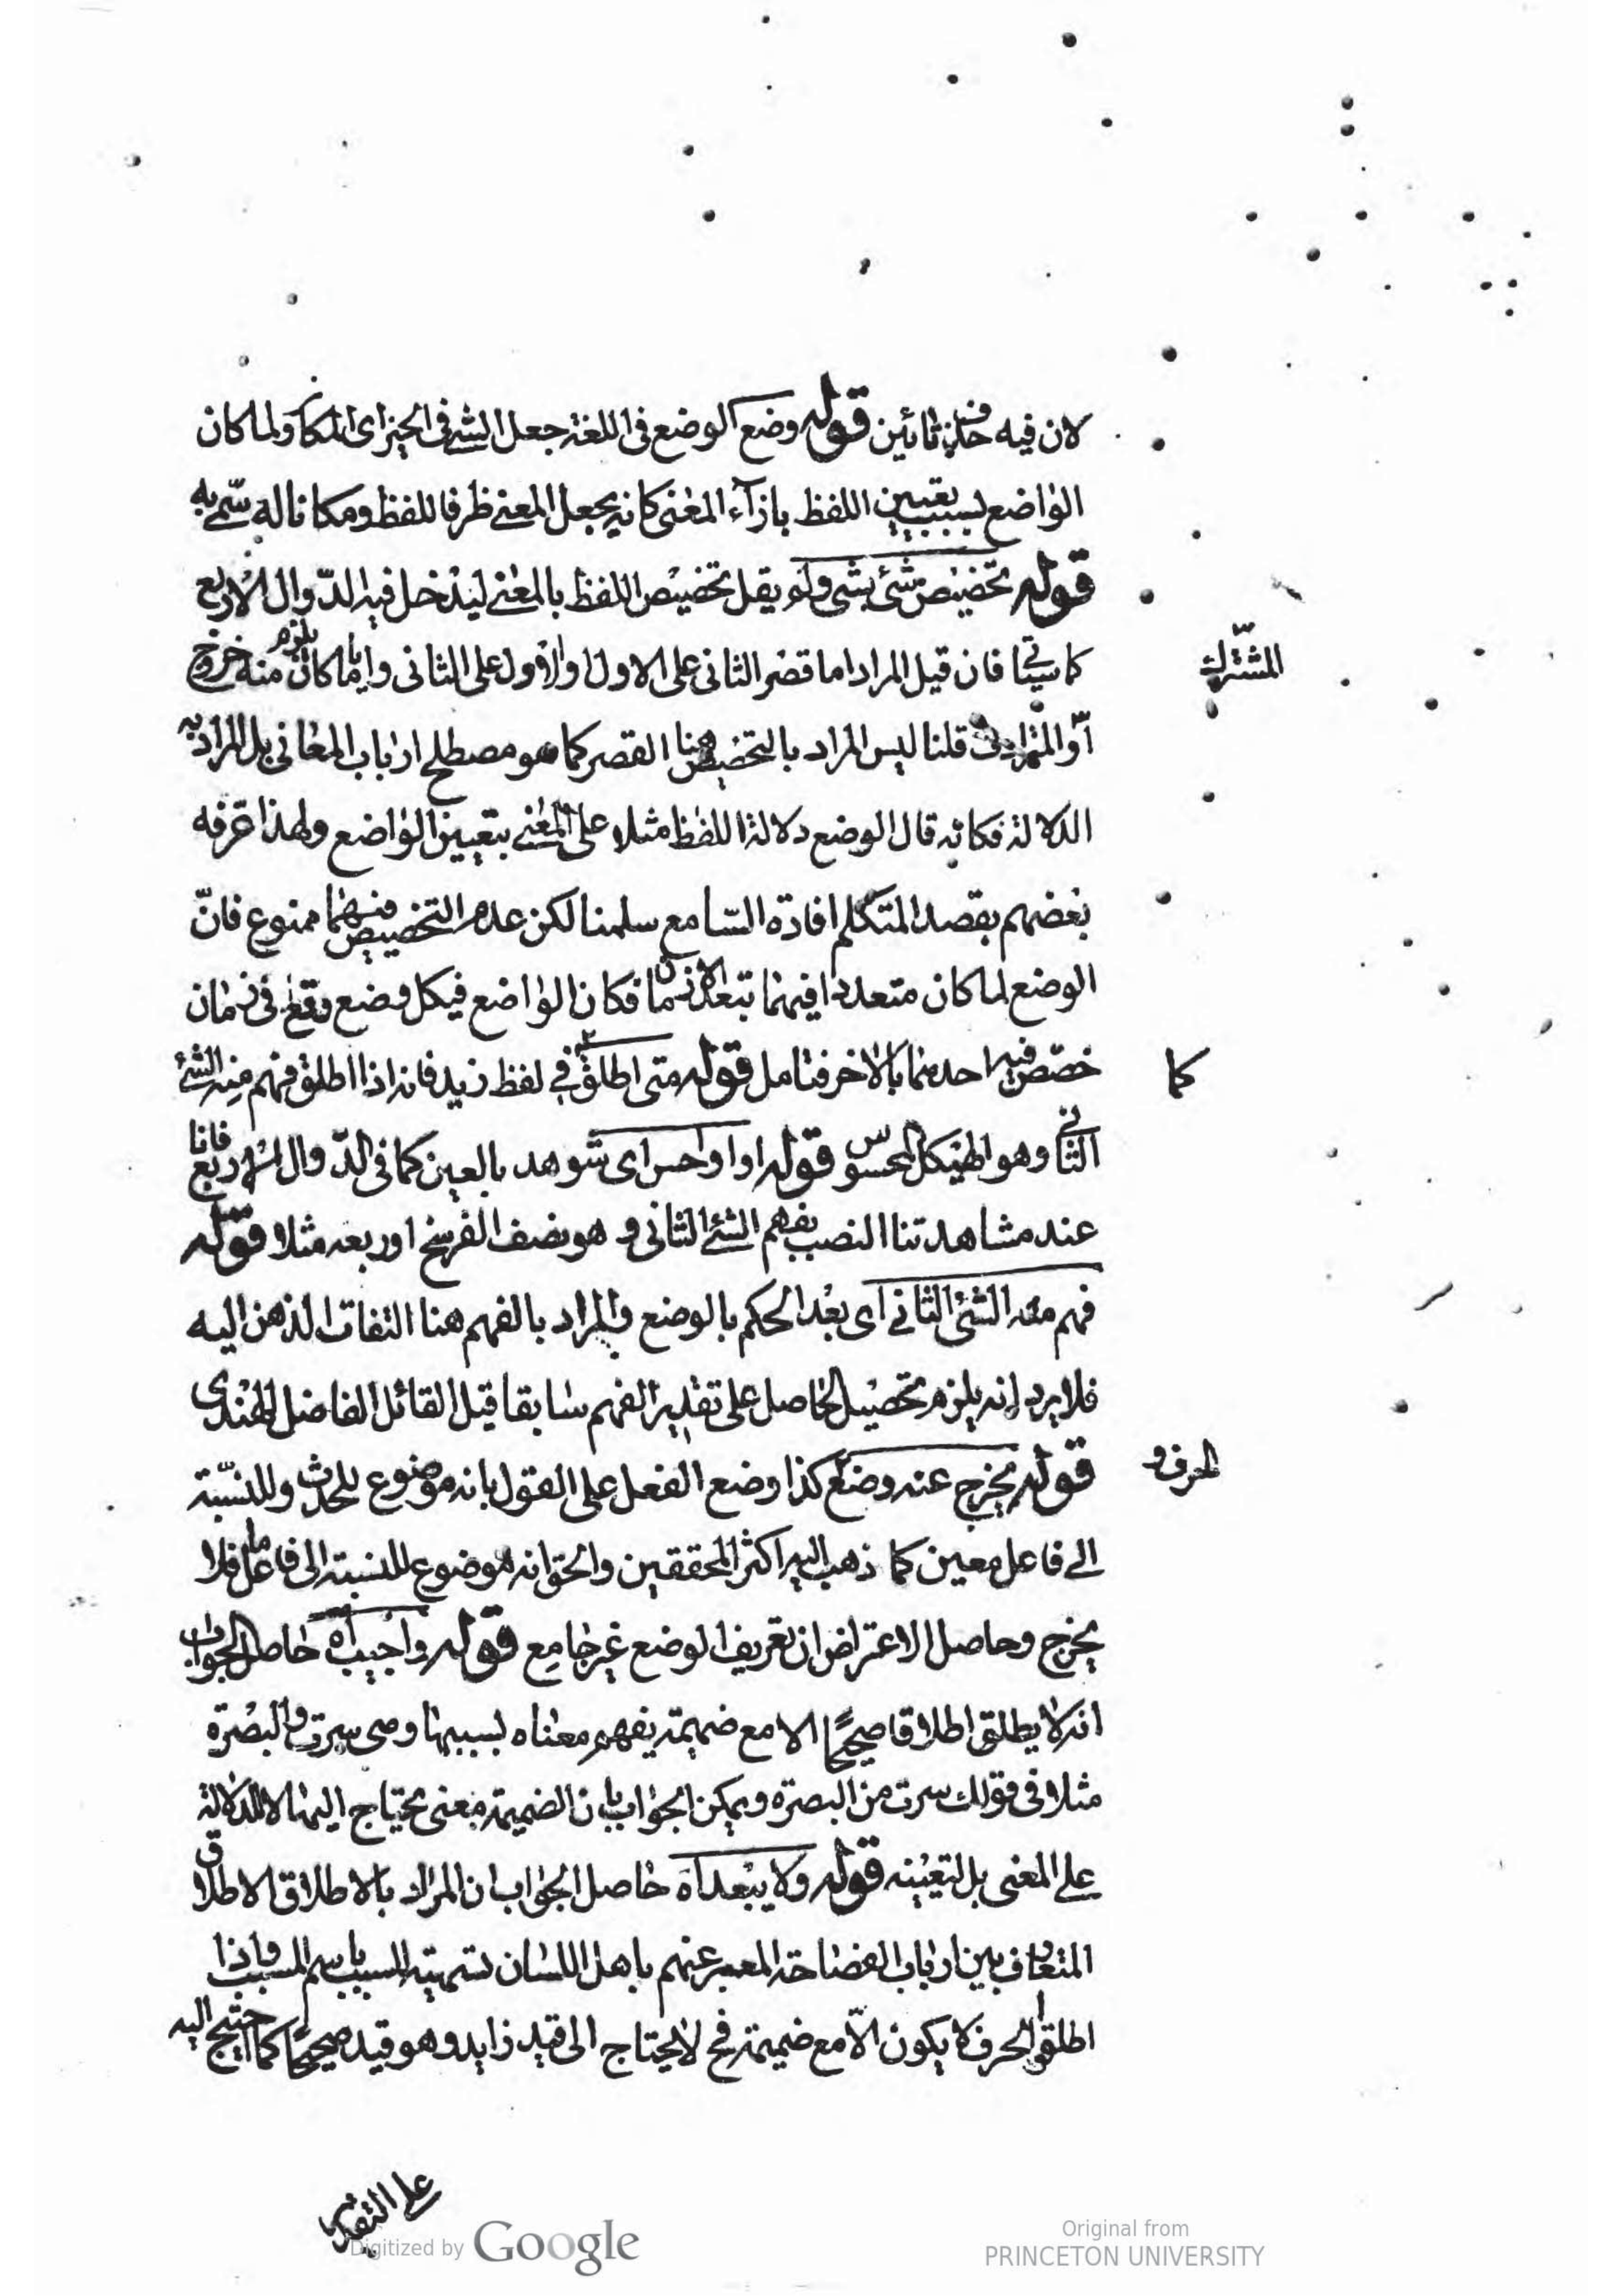 لان فيه حذف ثائين قوله وضع الوضع فى اللغة جعل الشئ فى الحيز اى المكان ولما كان
الواضع بسبب تعيين اللفظ بازآء المعنى كانه يجعل المعنى ظرفا للفظ ومكانا له سمّى به
قوله تخصيص شئ بشى ولم يقل تخصيص اللفظ بالمعنى ليدخل فيه الدّوال الاربع
كما سيأتى فان قيل المراد اما قصر الثانى على الاول او الاول على الثانى وايا ما كان يلزم منه خروج
المشترك
او المترادف قلنا ليس المراد بالتخصيص هنا القصر كما هو مصطلح ارباب المعانى بل المراد به
الدلالة فكانه قال الوضع دلالة اللفظ مثلا على المعنى بتعيين الواضع ولهذا عرفه
بعضهم بقصد المتكلم افادة السّامع سلمنا لكن عدم التخصيص فيهما ممنوع فانّ
الوضع لما كان متعددا فيهما بتعدد الازمان فكان الواضع فى كل وضع وقع فى زمان
خصّص فيه احدهما بالاخر فتامل قوله متى اطلق كما فى لفظ زيد فانه اذا اطلق فهم منه الشئ
كما
الثانى وهو الهيكل المحسوس قوله او احس اى شوهد بالعين كما فى الدّوال الاربع فانا
عند مشاهدتنا النصب يفهم الشئ الثانى وهو نصف الفرسخ او ربعه مثلا قوله
فهم منه الشئ الثانى اى بعد الحكم بالوضع والمراد بالفهم هنا التفات الذهن اليه
فلا يرد انه يلزم تحصيل الحاصل على تقدير الفهم سابقا قيل القائل الفاضل الهندى
قوله يخرج عنه وضع كذا وضع الفعل على القول بانه موضوع للحدث وللنسبة
الحرف و
الى فاعل معين كما ذهب اليه اكثر المحققين والحق انه موضوع للنسبة الى فاعل ما فلا
يخرج وحاصل الاعتراض ان تعريف الوضع غير جامع قوله واجيب اه حاصل الجواب
انه لا يطلق اطلاقا صحيحًا الا مع ضميمة يفهم معناه بسببها وهى سرت والبصرة
مثلا فى قولك سرت من البصرة ويمكن الجواب بان الضميمة معنى يحتاج اليها لا للدلالة
على المعنى بل لتعيينه قوله ولا يبعد اه حاصل الجواب ان المراد بالاطلاق الاطلاق
المتعارف بين ارباب الفصاحة المعبر عنهم باهل اللسان تسمية السبب باسم المسبب واذا
اطلقوا الحرف لا يكون الّا مع ضميمة فح لا يحتاج الى قيد زايد وهو قيد صحيحًا كما احتيج اليه
على التقدير
Digitized by Google
Original from
PRINCETON UNIVERSITY